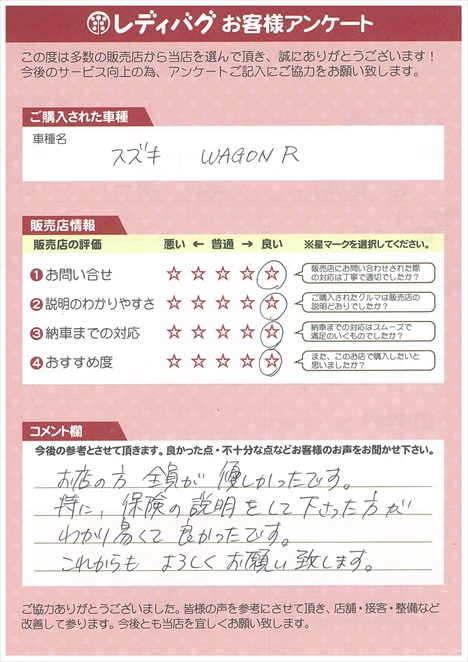 レディバグ お客様アンケート
この度は多数の販売店から当店を選んで頂き、誠にありがとうございます！
今後のサービス向上の為、アンケートご記入にご協力をお願い致します。
ご購入された車種
車種名
スズキ WAGON R
販売店情報
販売店の評価 悪い ← 普通 → 良い ※星マークを選択してください。
❶お問い合せ ☆ ☆ ☆ ☆ ☆ 販売店にお問い合わせされた際
の対応は丁寧で適切でしたか？
❷説明のわかりやすさ ☆ ☆ ☆ ☆ ☆ ご購入されたクルマは販売店の
説明どおりでしたか？
❸納車までの対応 ☆ ☆ ☆ ☆ ☆ 納車までの対応はスムーズで
満足のいくものでしたか？
❹おすすめ度 ☆ ☆ ☆ ☆ ☆ また、このお店で購入したいと
思いましたか？
コメント欄
今後の参考とさせて頂きます。良かった点・不十分な点などお客様のお声をお聞かせ下さい。
お店の方 全員が 優しかったです。
特に、保険の説明をして下さった方が
わかり易くて良かったです。
これからも よろしくお願い致します。
ご協力ありがとうございました。皆様の声を参考にさせて頂き、店舗・接客・整備など
改善して参ります。今後とも当店を宜しくお願い致します。